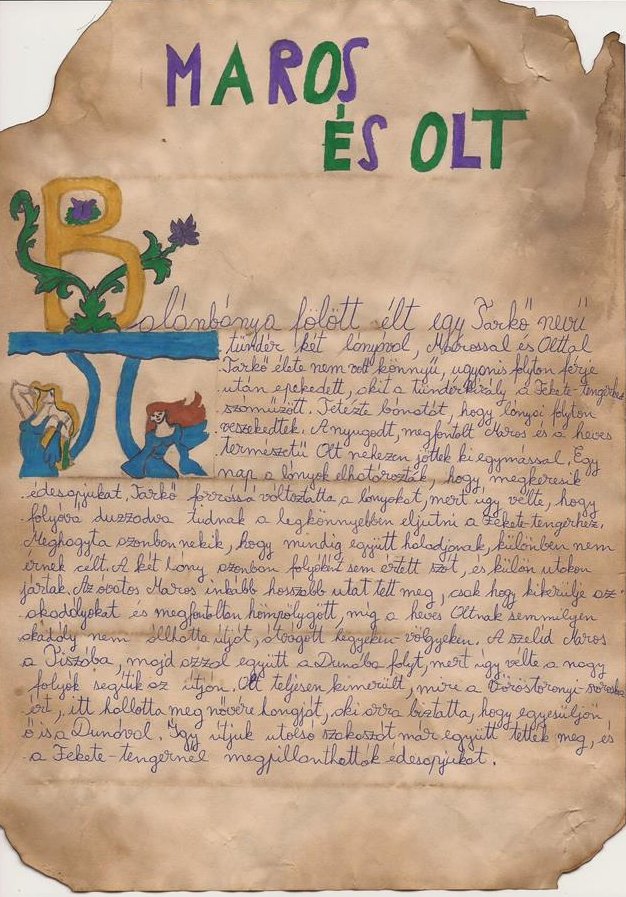 MAROS
ÉS OLT
Balánbánya fölött élt egy Tarkő nevű
tündér két lányával, Marossal és Olttal.
Tarkő élete nem volt könnyű, ugyanis folyton férje
után epekedett, akit a tündérkirály a Fekete-tengerhez
száműzött. Tetézte bánatát, hogy lányai folyton
veszekedtek. A nyugodt, megfontolt Maros és a heves
természetű Olt nehezen jöttek ki egymással. Egy
nap a lányok elhatározták, hogy megkeresik
édesapjukat. Tarkő forrássá változtatta a lányokat, mert úgy vélte, hogy
folyóvá duzzadva tudnak a legkönnyebben eljutni a Fekete-tengerhez.
Meghagyta azonban nekik, hogy mindig együtt haladjanak, különben nem
érnek célt. A két lány azonban folyóként sem értett szót, és külön utakon
jártak. Az óvatos Maros inkább hosszabb utat tett meg, csak hogy kikerülje az
akadályokat és megfontoltan hömpölygött, míg a heves Oltnak semmilyen
akadály nem állhatta útját, átvágott hegyeken-völgyeken. A szelíd Maros
a Tiszába, majd azzal együtt a Dunába folyt, mert úgy vélte a nagy
folyók segítik az útján. Olt teljesen kimerült, mire a Vöröstoronyi-szorosba
ért, itt hallotta meg nővére hangját, aki arra biztatta, hogy egyesüljön
ő is a Dunával. Így útjuk utolsó szakaszát már együtt tették meg, és
a Fekete-tengernél megpillanthatták édesapjukat.